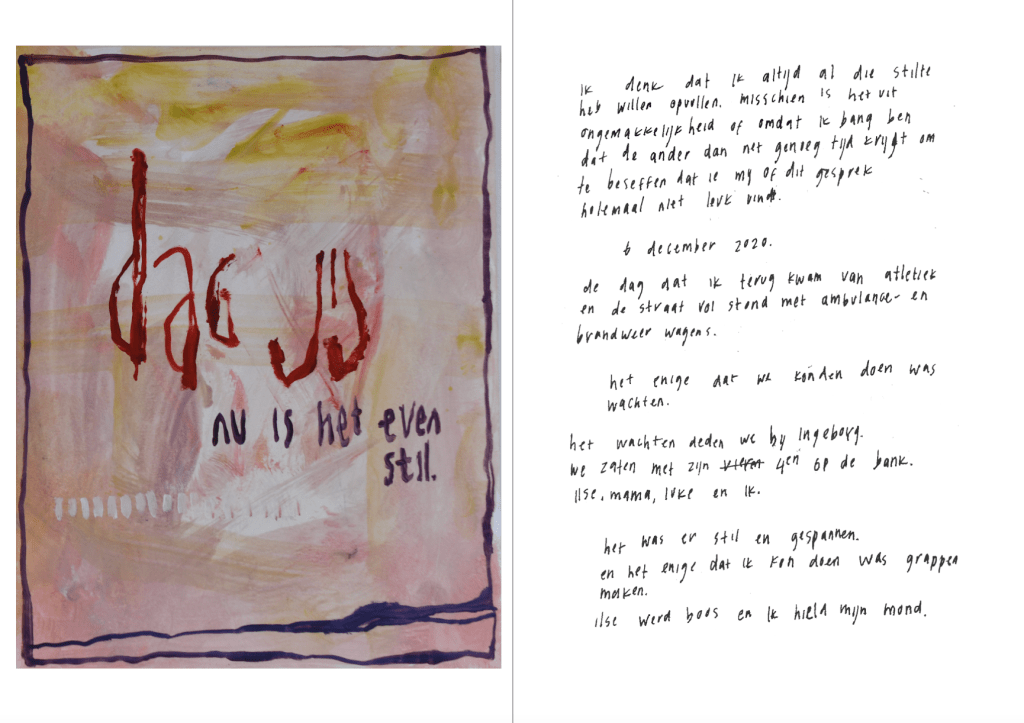 dag jij
nu is het even
stil.
ik denk dat ik altijd al die stilte
heb willen opvullen. misschien is het uit
ongemakkelijkheid of omdat ik bang ben
dat de ander dan net genoeg tijd krijgt om
te beseffen dat ie mij of dit gesprek
helemaal niet leuk vindt.
6 december 2020.
de dag dat ik terug kwam van atletiek
en de straat vol stond met ambulance- en
brandweer wagens.
het enige dat we konden doen was
wachten.
het wachten deden we bij Ingeborg.
we zaten met zijn 4en op de bank.
ilse, mama, luke en ik.
het was er stil en gespannen.
en het enige dat ik kon doen was grappen
maken.
ilse werd boos en ik hield mijn mond.